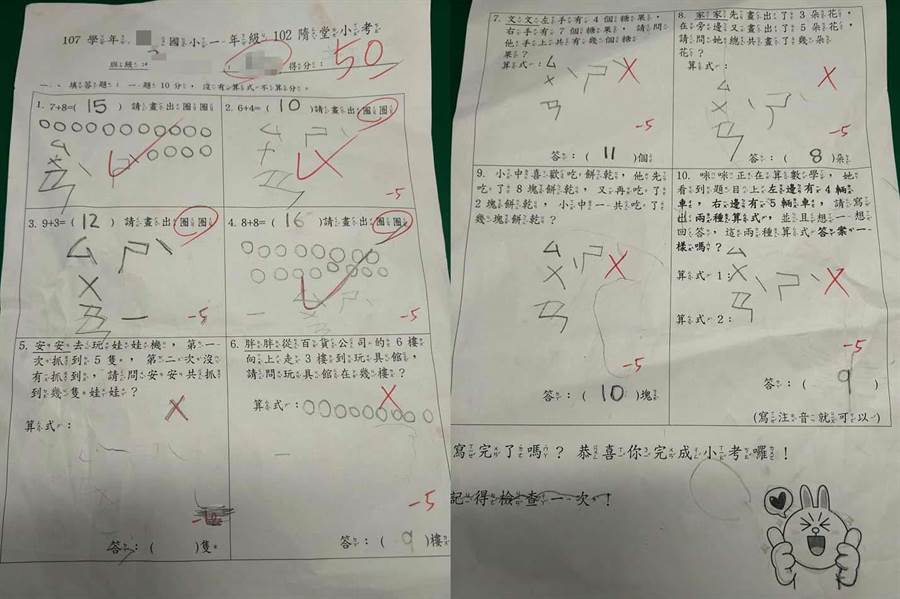 107學年 國小一年級102隋堂小考
班級:
得分: 50
一、填答題:(一題10分,沒有算式不算分。
1. 7+8=( 15 ) 請畫出圈圈
ㄙㄨㄢ
2. 6+4=( 10 ) 請畫出圈圈
ㄕˋ
-5
3. 9+3=( 12 ) 請畫出圈圈
ㄙㄨㄢ ㄕˋ 一
-5
4. 8+8=( 16 ) 請畫出圈圈
-5
5. 安安去玩娃娃機,第一
次抓到5隻,第二次沒
有抓到,請問安安共抓
到幾隻娃娃?
算式:
答:( )隻
6. 胖胖從百貨公司的6樓
向上走3樓到玩具館,
請問玩具館在幾樓?
算式:
-5
答:( 9 )樓
7. 文文左手有4個糖果,
右手有7個糖果,請問
他手上共有幾個糖
果?
算式:
ㄙㄨㄢ ㄕˋ
-5
答:( 11 )個
8. 家家先畫出了3朵花,
在旁邊又畫出了5朵花,
請問她總共畫了幾朵
花?
算式:
ㄙㄨㄢ ㄕˋ
-5
答:( 8 )朵
9. 小中喜歡吃餅乾,他先
吃了8塊餅乾,又再吃了
2塊餅乾,小中一共吃了
幾塊餅乾?
ㄙㄨㄢ ㄕˋ
-5
答:( 10 )塊
10. 咪咪正在算數學,她
看到題目上左邊有4輛
車,右邊有5輛車,請寫
出兩種算式,並且想一想
回答,這兩種算式答案一
樣嗎?
算式1:
ㄙㄨㄢ ㄕˋ
算式2:
-5
答:( 9 )
(寫注音就可以)
寫完了嗎?恭喜你完成小考囉!
記得檢查一次!